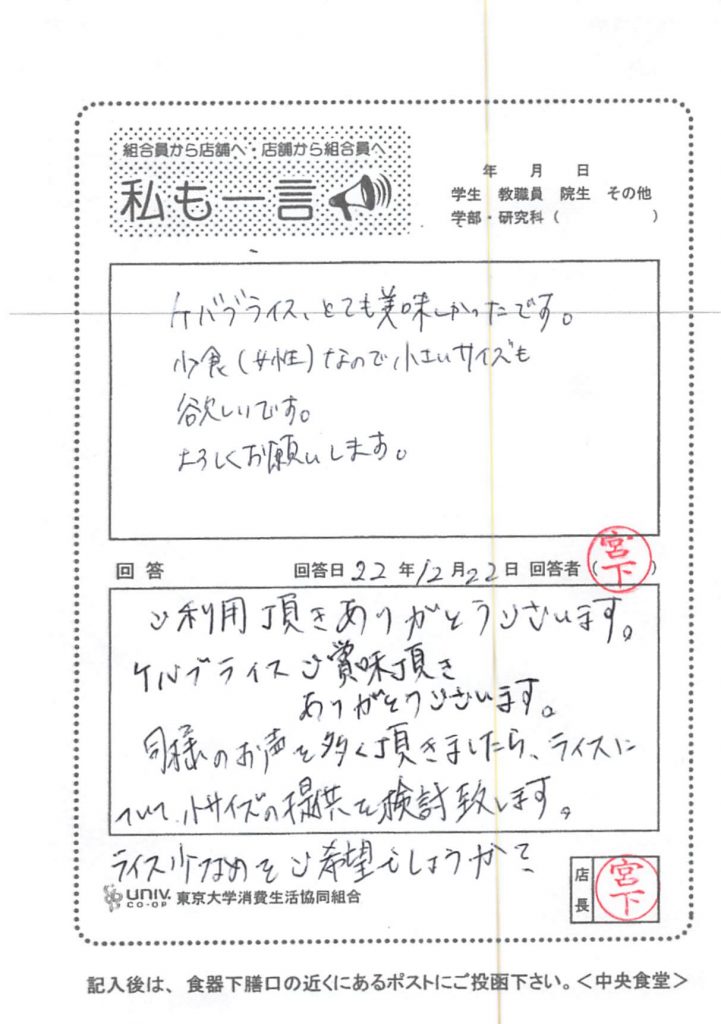 組合員から店舗へ・店舗から組合員へ
私も一言
年 月 日
学生 教職員 院生 その他
学部・研究科（ ）
ケバブライス、とても美味しかったです。
少食(女性)なので小さいサイズも
欲しいです。
よろしくお願いします。
回答 回答日22年12月22日 回答者（宮下）
ご利用頂きありがとうございます。
ケバブライスご賞味頂き
ありがとうございます。
同様のお声を多く頂きましたら、ライスに
ついて小サイズの提供を検討致します。
ライス少なめをご希望でしょうか?
UNIV. CO-OP 東京大学消費生活協同組合
店長 宮下
記入後は、食器下膳口の近くにあるポストにご投函下さい。＜中央食堂＞